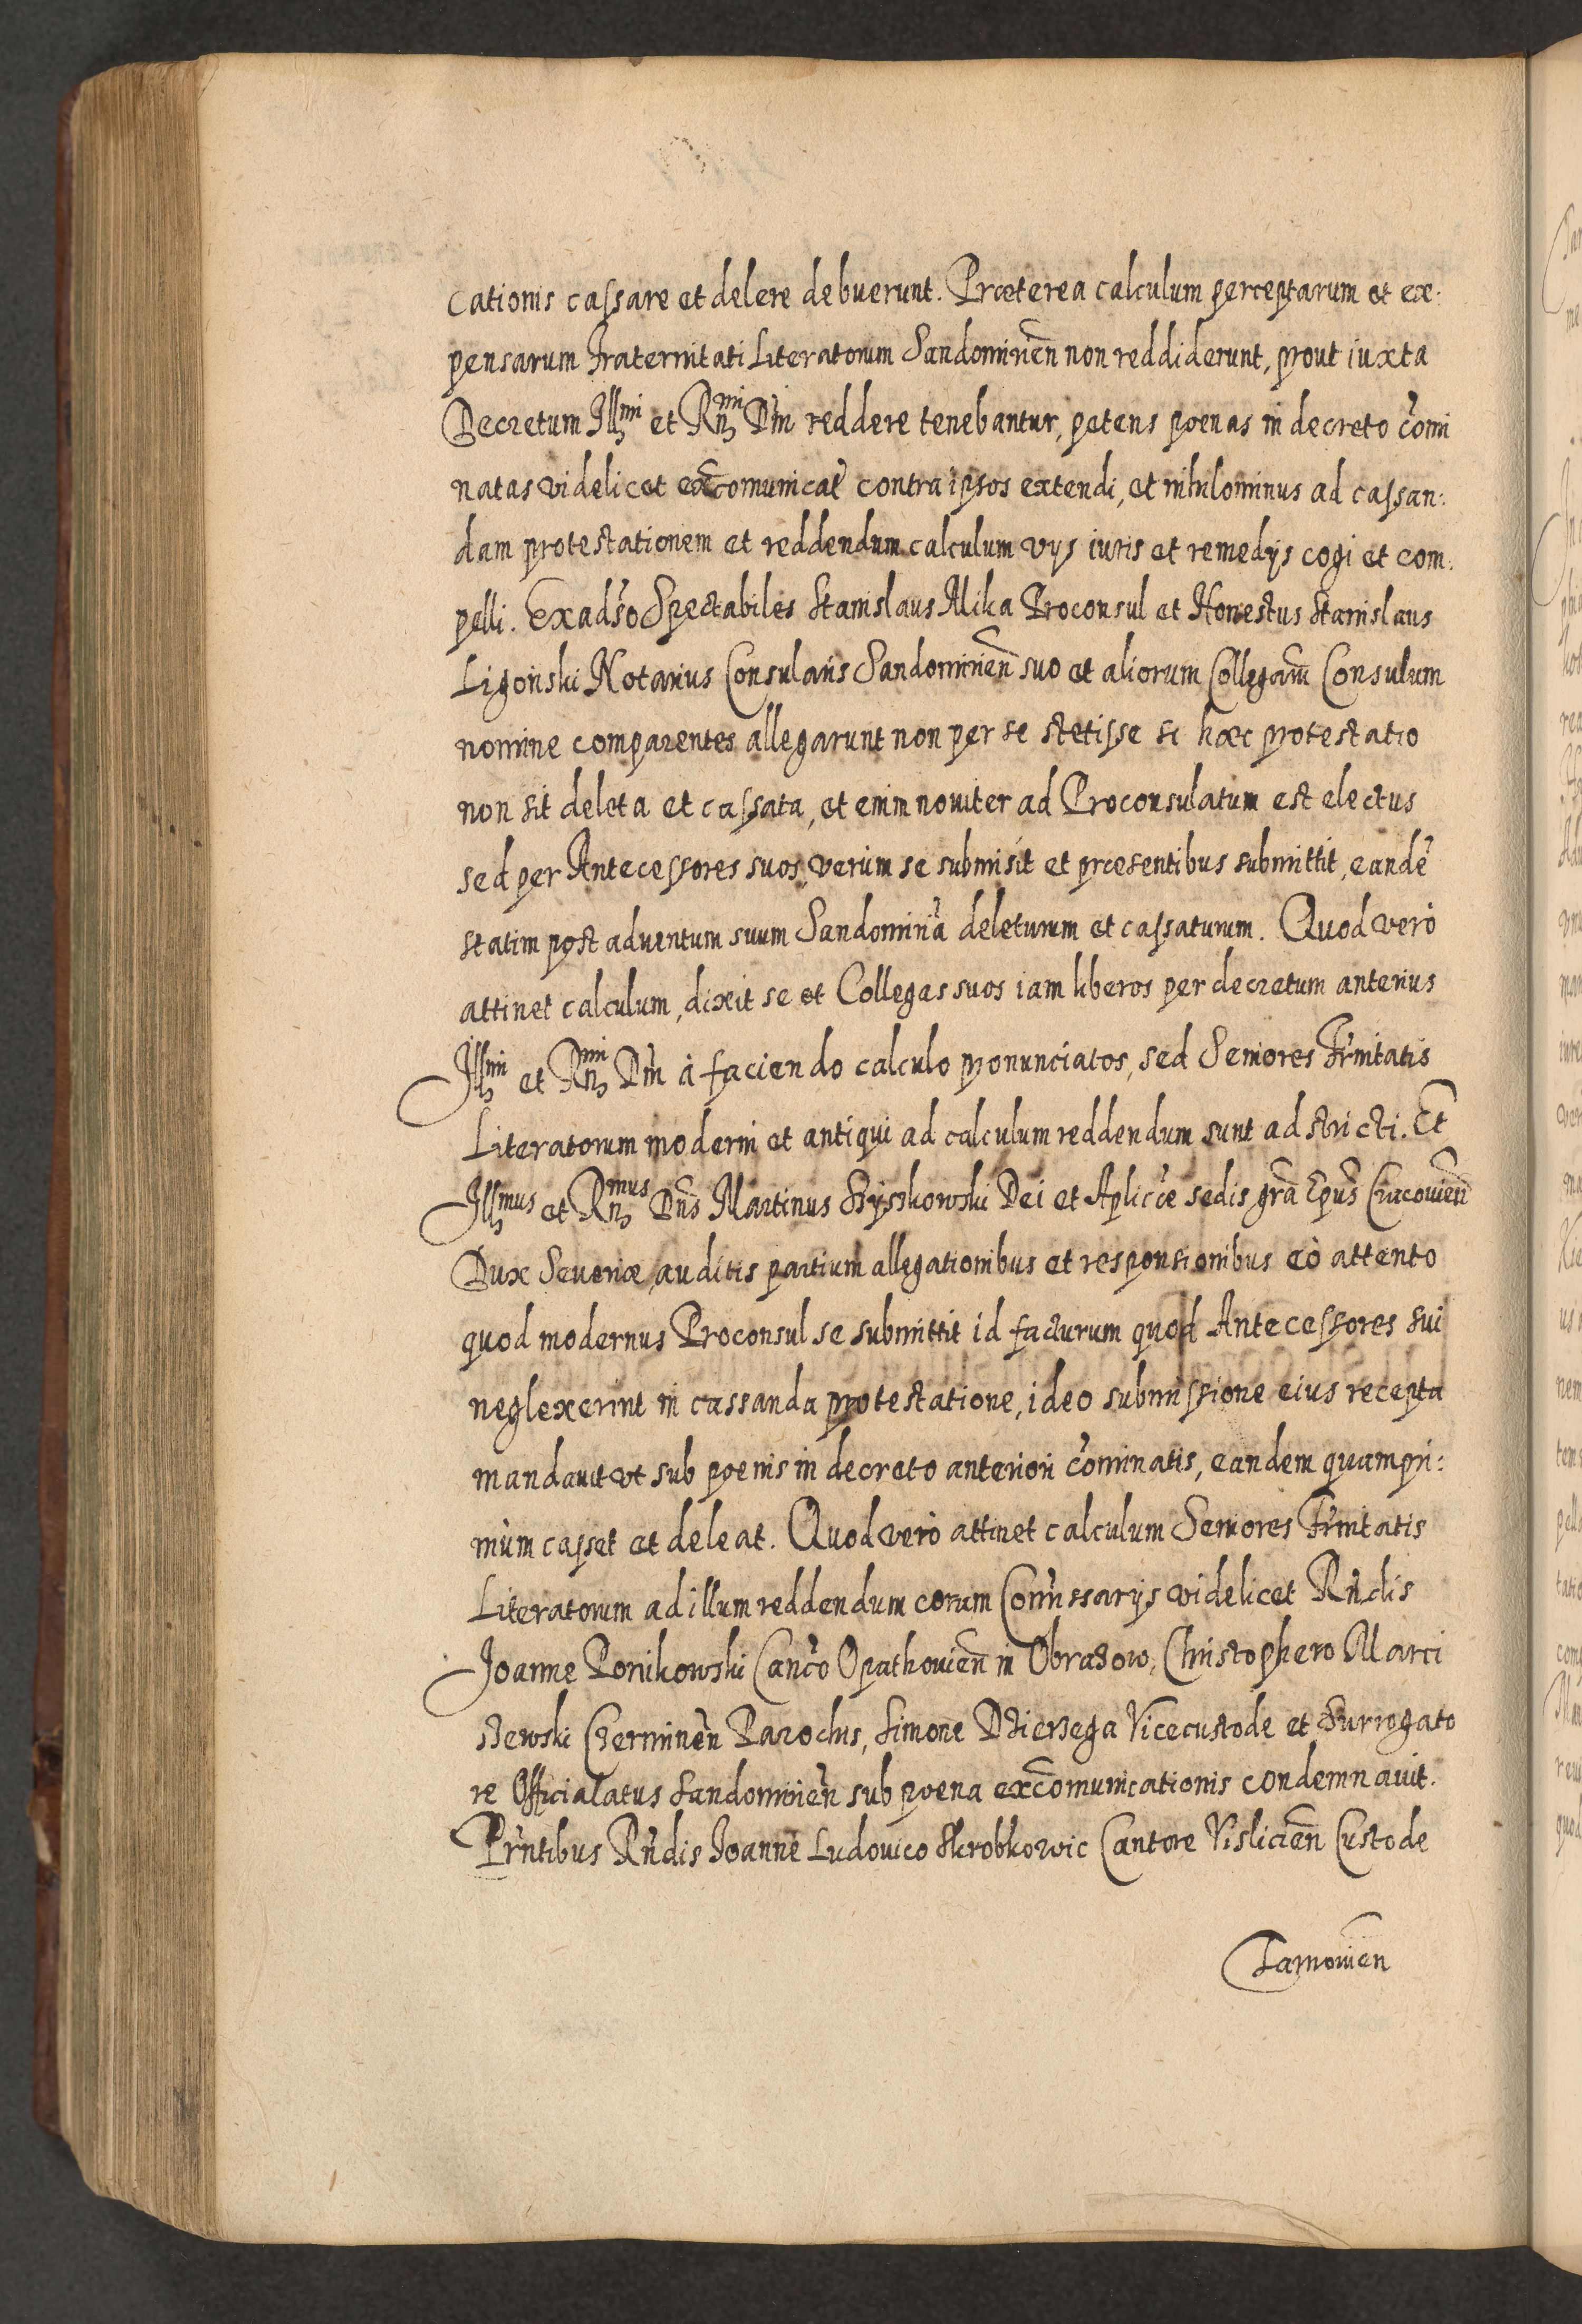 cationis cassare et delere debuerunt. Præterea calculum perceptarum et ex:
pensarum Fraternitati Literatorum Sandomirien̄ non reddiderunt, prout iuxta
Decretum Illmi et Rn̄mi Dn̄i reddere tenebantur, petens poenas in decreto c̄omi
natas videlicet excomunicat̄ contra ipsos extendi, et nihilominus ad cassan:
dam protestationem et reddendum calculum vys iuris et remedijs cogi et com:
pelli. Ex adŝo Spectabiles Stanislaus Alika Proconsul et Honestus Stanislaus
Ligoński Notarius Consularis Sandomirien̄ suo et aliorum Collegarū Consulum
nomine comparentes allegarunt non per se stetisse si hæc protestatio
non sit deleta et cassata, et enim noviter ad Proconsulatum est electus
sed per Antecessores suos, verùm se submisit et præsentibus submittit, eandē
statim post adventum suum Sandomiriā deleturum et cassaturum. Quod verò
attinet calculum, dixit se et Collegas suos iam liberos per decretum anterius
Illmi et Rn̄mi Dn̄i à faciendo calculo pronunciatos, sed Seniores Frn̄itatis
Literatorum moderni et antiqui ad calculum reddendum sunt adstricti. Et
Illmus et Rn̄mus Dn̄s Martinus Szyszkowski Dei et Aplicæ sedis gr̄a Ep̄us Cracovien̄
Dux Severiæ, auditis partium allegationibus et responsionibus eò attento
quod modernus Proconsul se submittit id facturum quod Antecessores sui
neglexerint in cassanda protestatione, ideo submissione eius recepta
mandavit vt sub poenis in decreto anteriori c̄ominatis, eandem quampri:
mùm casset et deleat. Quod verò attinet calculum Seniores Frn̄itatis
Literatorum ad illum reddendum coram Com̄issarijs videlicet Rn̄dis
Joanne Ponikowski Can̄co Opathovien̄ in Obrazow, Christophero Marci
szewski Czerminen̄ Parochis, Simone Dzierzega Vicecustode et Surrogato
re Officialatus Sandomirien̄ sub poena excom̄unicationis condemnavit.
Prn̄tibus Rn̄dis Joanne Ludovico Skrobkowic Cantore Vislicien̄ Custode
Tarnovien̄